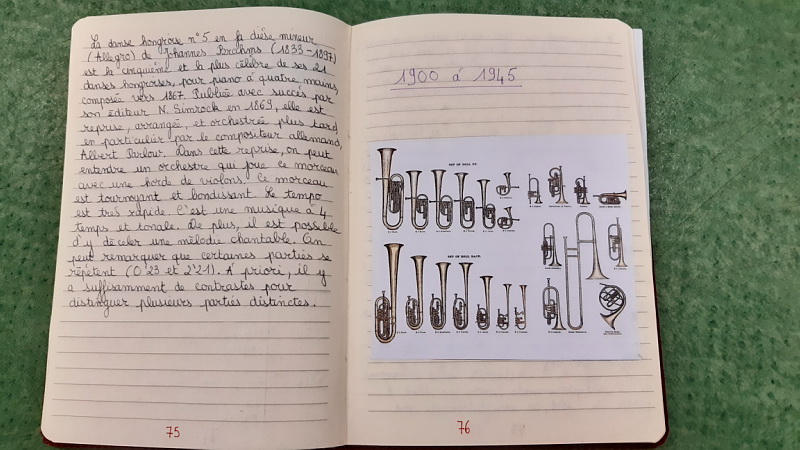 La danse hongroise n°5 en fa dièse mineur
(Allegro) de Johannes Brahms (1833-1897)
est la cinquième et la plus célèbre de ses 21
danses hongroises, pour piano à quatre mains,
composée vers 1867. Publiée avec succès par
son éditeur N. Simrock en 1869, elle est
reprise, arrangée, et orchestrée plus tard,
en particulier par le compositeur allemand,
Albert Parlow. Dans cette reprise, on peut
entendre un orchestre qui joue ce morceau
avec une horde de violons. Ce morceau
est tournoyant et bondissant. Le tempo
est très rapide. C'est une musique à 4
temps et tonale. De plus, il est possible
d'y déceler une mélodie chantable. On
peut remarquer que certaines parties se
répètent (0'23 et 2'21). A priori, il y
a suffisamment de contrastes pour
distinguer plusieurs parties distinctes.
75
1900 à 1945
SET OF BELL UP.
SET OF BELL BACK.
76